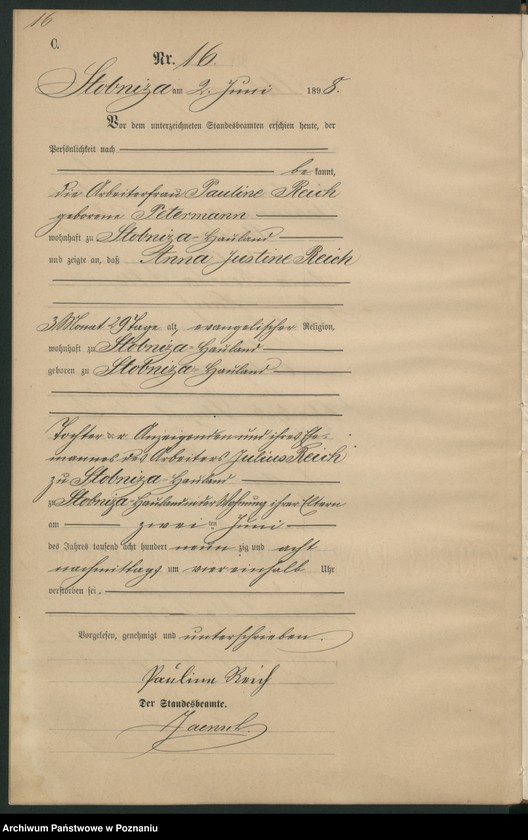 16
C.
Nr. 16.
Stobniza am 2. Juni 1898.
Vor dem unterzeichneten Standesbeamten erschien heute, der
Persönlichkeit nach
be kannt,
die Arbeiterfrau Pauline Reich
geborene Petermann
wohnhaft zu Stobniza-Hauland
und zeigte an, daß Anna Justine Reich
3 Monat 29 Tage alt, evangelischer Religion,
wohnhaft zu Stobniza-Hauland
geboren zu Stobniza-Hauland
Tochter der Anzeigenden und ihres Ehe-
mannes des Arbeiters Julius Reich
zu Stobniza-Hauland
zu Stobniza-Hauland in der Wohnung ihrer Eltern
am zwei ten Juni
des Jahres tausend acht hundert neun zig und acht
nachmittags um viereinhalb Uhr
verstorben sei.
Vorgelesen, genehmigt und unterschrieben.
Pauline Reich
Der Standesbeamte.
Archiwum Państwowe w Poznaniu